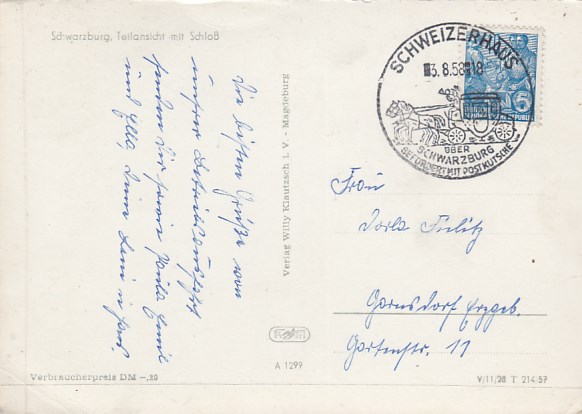 Schwarzburg, Teilansicht mit Schloß
Die besten Grüße von
unserer Betriebsausfahrt
senden Dir sowie Paula Emil
und Ella, Deine Leni u.
Verlag Willy Klautzsch i. V. - Magdeburg
SCHWEIZERHAUS
3.8.58 18
ÜBER
SCHWARZBURG
BEFÖRDERT MIT POSTKUTSCHE
5
Frau
Dorla Fielitz
Gornsdorf Erzgeb.
Gartenstr. 11
A 1299
Verbraucherpreis DM -,20
V/11/28 T 214 57